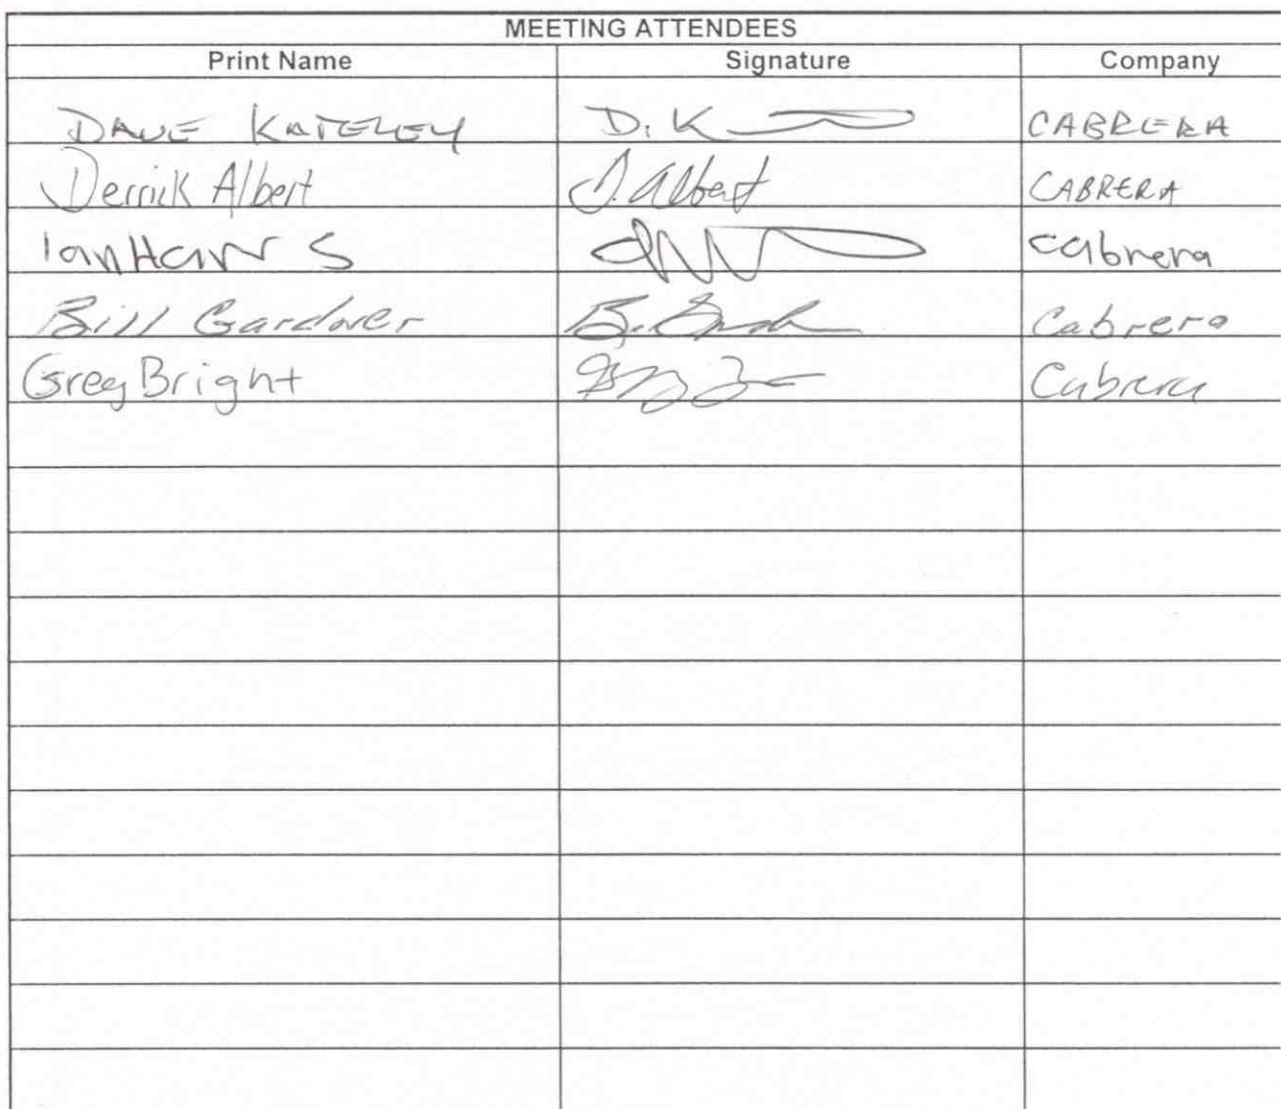 MEETING ATTENDEES
Print Name Signature Company
DAVE KATELEY D. K CABRERA
Derrick Albert D. Albert CABRERA
Ian Harris Cabrera
Bill Gardner Cabrera
Greg Bright Cabrera